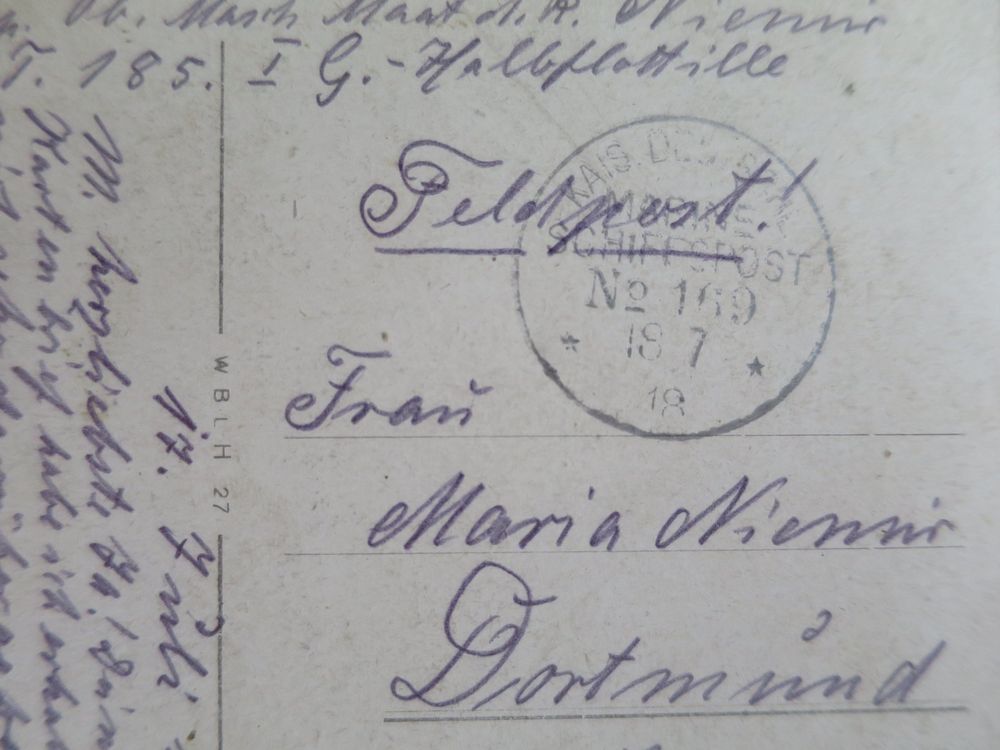 Ob. Masch Maat d. R. Niemir
T. 185. I G.-Halbflottille
Feldpost!
KAIS. DEUTSCHE
MARINE-
SCHIFFSPOST
No 169
18 7
18
Frau
Maria Niemir
Dortmund
WBLH 27
17. Juli
M. herzliebste
Kart un brief habe ich